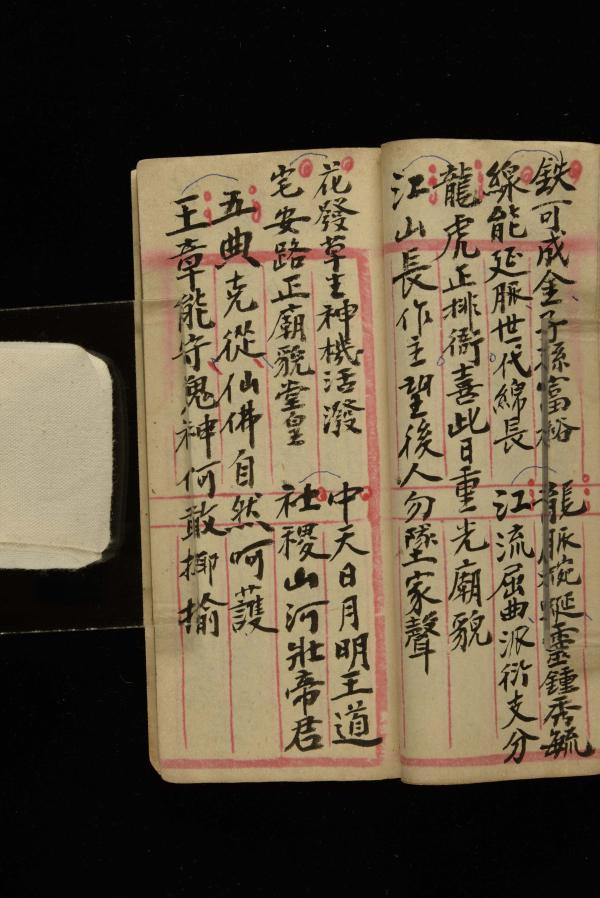 鉄可成金子孫富裕
龍脈蜿蜒靈鍾秀毓
線能延脈世代綿長
江流屈曲派衍支分
龍虎正排衙喜此日重光廟貌
江山長作主望後人勿墜家聲
花發草生神機活潑
中天日月明王道
宅安路正廟貌堂皇
社稷山河壯帝君
五典克從仙佛自然呵護
王章能守鬼神何敢揶揄